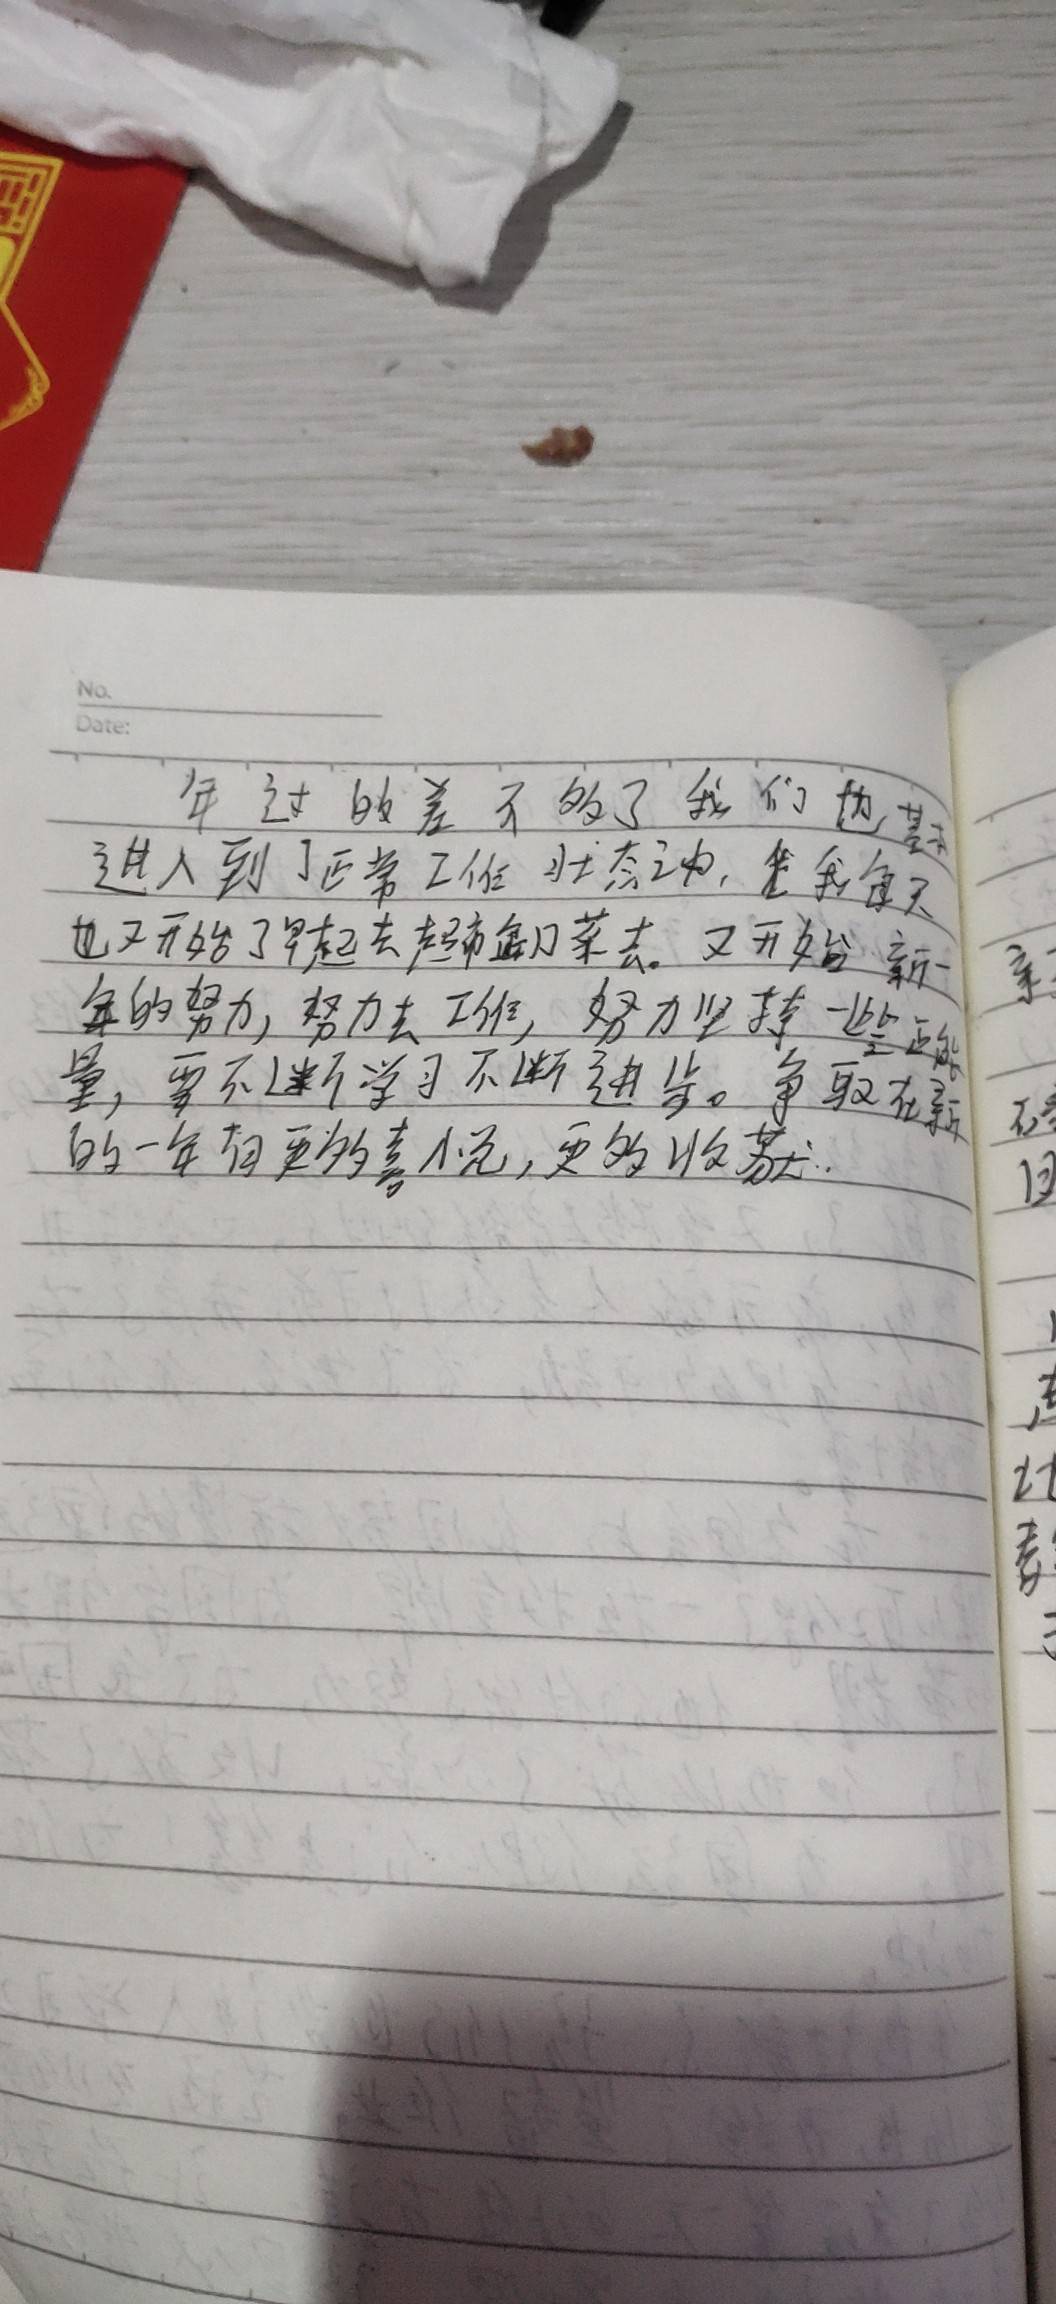 No.
Date:
年过的差不多了我们也基本
进入到了正常工作状态之中,我每天
也又开始了早起去超市每日菜去。又开始新一
年的努力,努力去工作,努力坚持一些正能
量,要不断学习不断进步。争取在新
的一年有更多的喜悦,更多收获..